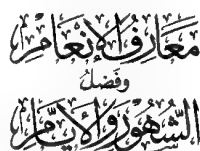 مَعَارِفُ الإِنْعَامِ
وَفَضْلُ
الشُّهُورِ وَالأَيَّامِ